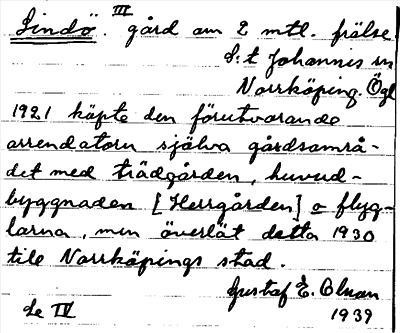 Lindö. III gård om 2 mtl. frälse
S:t Johannis sn
Norrköping. Ögl
1921 köpte den förutvarande
arrendatorn själva gårdsområ-
det med trädgården, huvud-
byggnaden [Herrgården] o flyg-
larna, men överlät detta 1930
till Norrköpings stad.
Gustaf E. Olsson
Se IV 1939